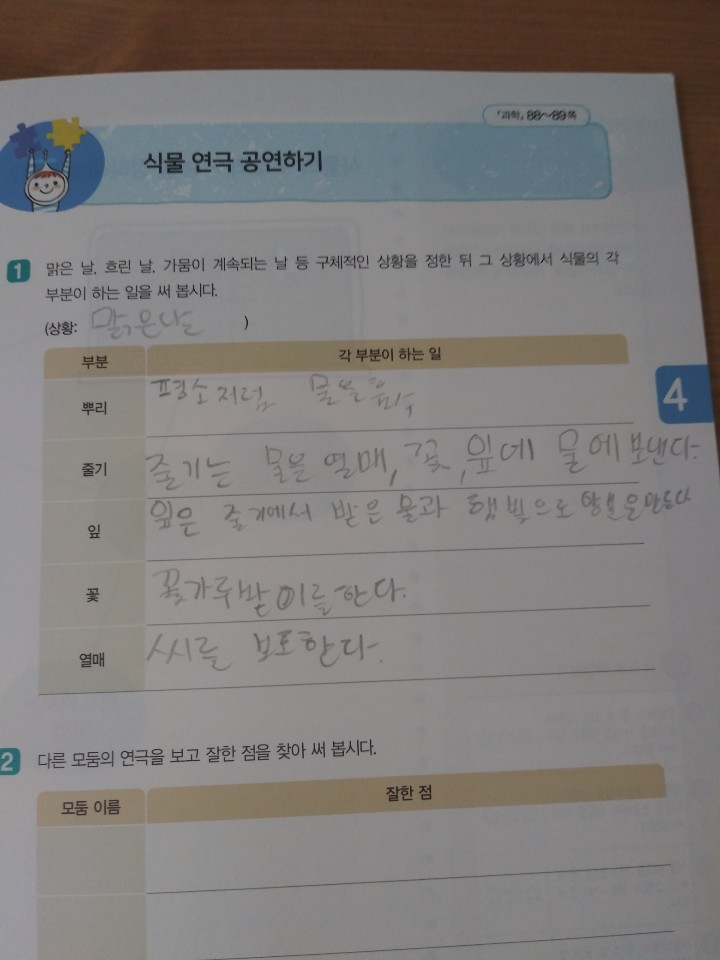 「과학」 88~89쪽
식물 연극 공연하기
1 맑은 날, 흐린 날, 가뭄이 계속되는 날 등 구체적인 상황을 정한 뒤 그 상황에서 식물의 각
부분이 하는 일을 써 봅시다.
(상황: 맑은날 )
부분 각 부분이 하는 일
뿌리 평소처럼 물을 흡수
줄기 줄기는 물을 열매, 꽃, 잎에 물에 보낸다.
잎 잎은 줄기에서 받은 물과 햇빛으로 만든다
꽃 꽃가루받이를 한다.
열매 씨를 보호한다.
4
2 다른 모둠의 연극을 보고 잘한 점을 찾아 써 봅시다.
모둠 이름 잘한 점